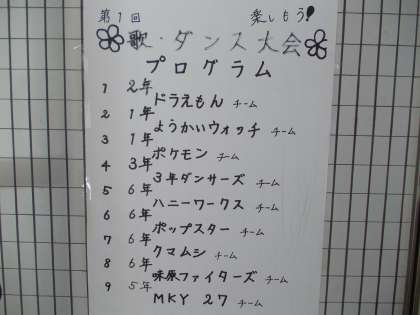 第1回 楽しもう!
歌・ダンス大会
プログラム
1 2年
ドラえもん チーム
2 1年
ようかいウォッチ チーム
3 1年
ポケモン チーム
4 3年
3年ダンサーズ チーム
5 6年
ハニーワークス チーム
6 6年
ポップスター チーム
7 6年
クマムシ チーム
8 6年
味原ファイターズ チーム
9 5年
MKY 27 チーム